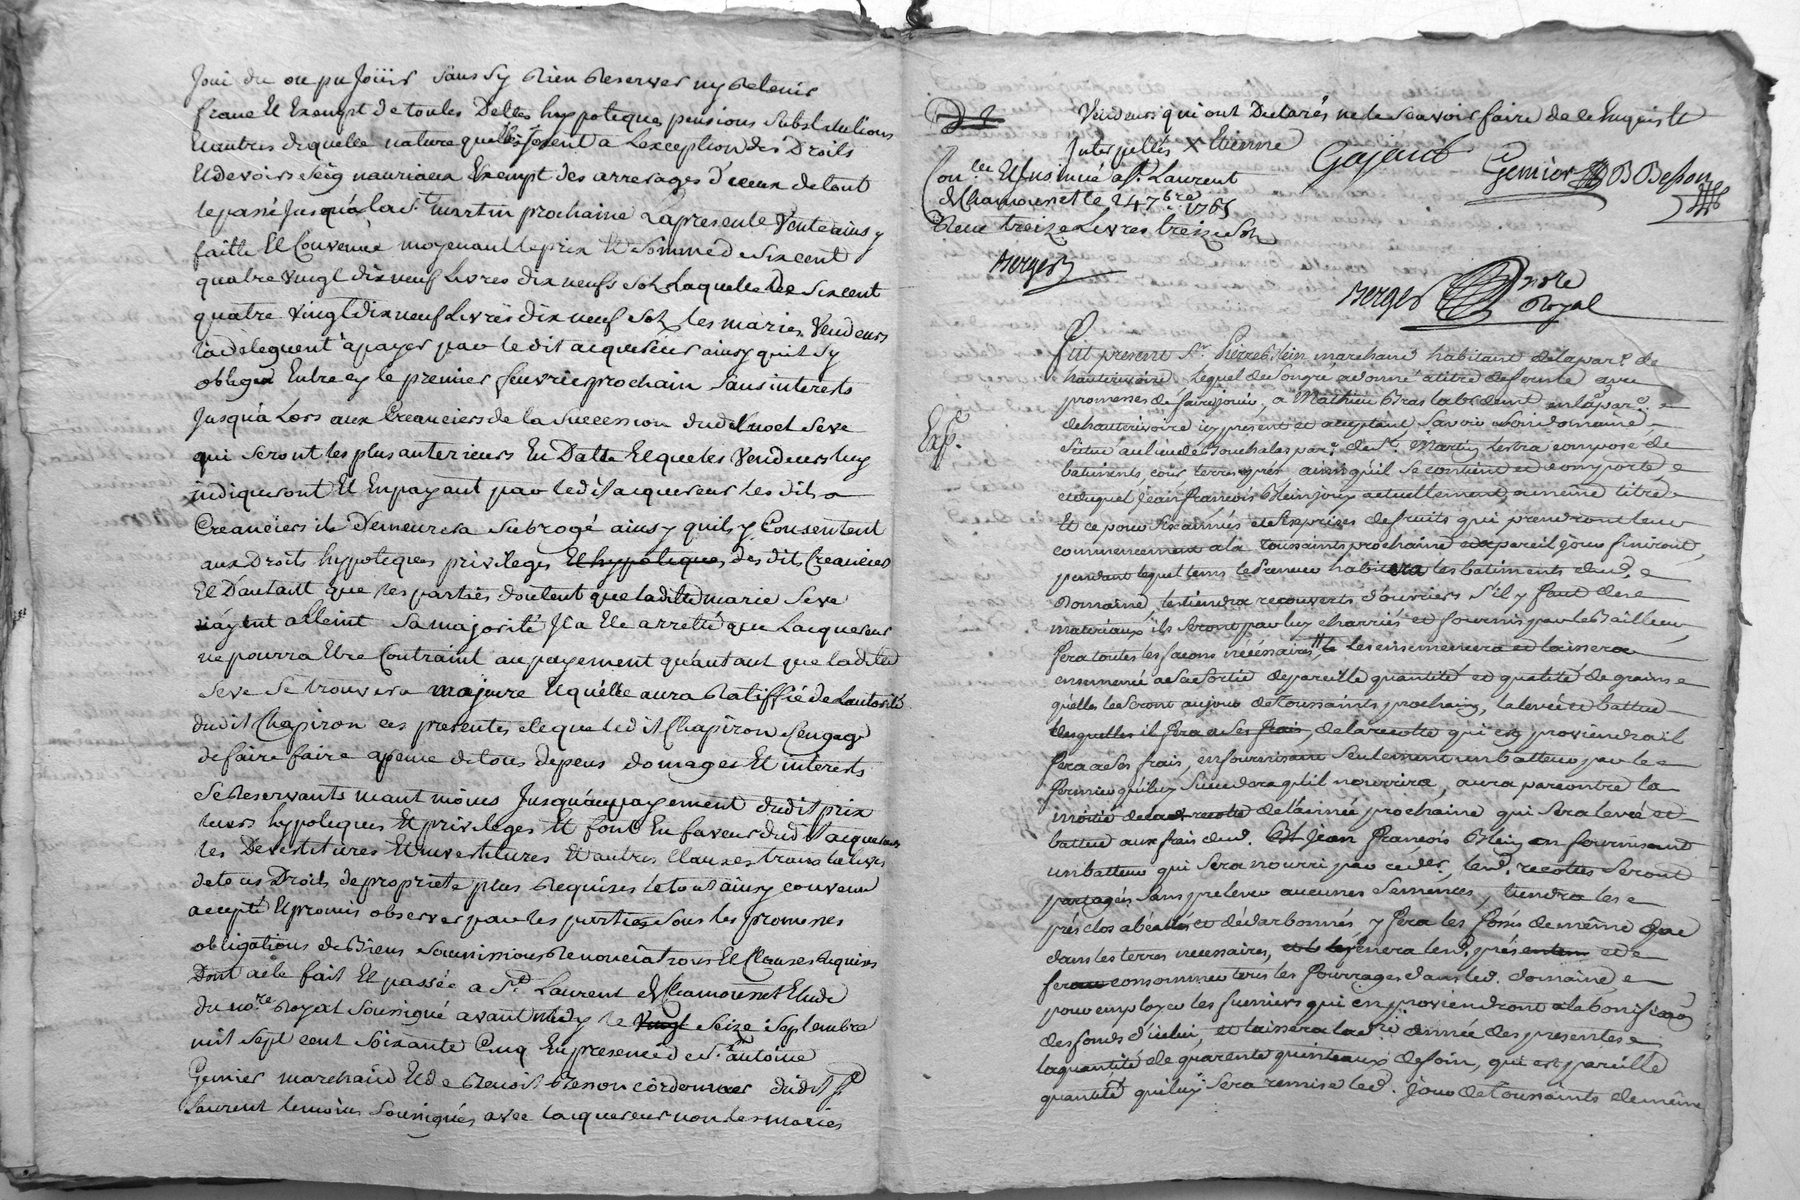 Joui du ou pu Joüir sans sy Rien Reserver ny Retenir
franc Et Exempt de toutes Debtes hypoteques pensions Substitutions
Et autres de quelle nature quelles soient a Lexception des Droits
Et devoirs seig nauriaux Exempt des arrerages d'iceux de tout
le passé Jusqu'a la st martin prochaine La presente Vente ainsy
faitte Et Convenüe moyenant le prix Et Somme de Six cent
quatre vingt dix neuf Livres dix neufs Sols Laquelle de Six cent
quatre Vingt dix neuf Livres dix neuf Sols les mariés Vendeurs
la deleguent a payer par le dit acquereur ainsy qu'il sy
oblige Entre cy le premier feuvrier prochain sans interests
Jusqu'a Lors aux Creanciers de la Succession dudit Seve
qui seront les plus anterieurs En Datte Et que les Vendeurs luy
indiqueront Et En payant par ledit acquereur les dits
Creanciers il Demeurera Subrogé ainsy qu'ils y Consentent
aux Droits hypoteques privileges Et hypoteques des dit Creanciers
Et D'autant que les parties doutent que ladite marie Seve
n'ayent atteint sa majorité Il a Ete arretté que Lacquereur
ne pourra Etre Contraint au payement qu'autant que ladite
Seve se trouvera majeure Et qu'elle aura Ratiffié de Lautorité
dudit Chapiron ces presentes et que ledit Chapiron s'engage
de faire faire a peine de tous depens domages Et interests
Se Reservants neant moins Jusqu'au payement dudit prix
leurs hypoteques Et privileges Et font En faveur dudit acquereur
les Devestitures Et investitures Et autres Clauses translatives
de tous Droits de propriete plus Requises le tout ainsy convenu
accepté Et promis observer par les parties sous les promesses
obligations de Biens soumissions Renonciations Et Clauses Requises
Dont acte fait Et passée a St Laurent de Chamousset Etude
du no.re Royal Soussigné avant midy le vingt seize septembre
mil sept cent soixante Cinq En presence de sr antoine
Genier marchand Et de Benoit Besson cordonnier dudit St
Laurent temoins Soussignés avec lacquereur non les mariés
Vendeurs qui ont Declarés ne le scavoir faire de ce Enquis Et
Interpellés X Etienne
Gajant
Genier
B Besson
Con.lé Et Insinué a st. Laurent
de Chamousset le 24 7bre 1765
Reçu treize Livres treize Sols
Berger
Berger no.re
Royal
Exp.
Fut present Sr. Pierre Blein marchand habitant de la par.e de
hauterivoire, lequel de son gré a donné a titre de ferme avec
promesses de faire jouir, a Mathieu Bras lab.r demt. en la par.e
de hauterivoire icy present et acceptant Savoir son domaine
Scitué au lieu de par.e de St. Martin Lestra composé de
batiments, cour, terres, prés ainsi qu'il se contient et comporte
et duquel Jean François Blein jouy actuellement a même titre
Et ce pour six années et six prises de fruits qui prendront leur
commencement a la toussaints prochaine et a pareil jour finiront,
pendant lequel tems le preneur habitera les batiments dud.
Domaine, les tiendra recouverts d'ouvriers s'il y faut des
materiaux ils seront par luy charriés et fournis par le Bailleur,
fera toutes les façons nécessaires, les ensemencera et laissera
ensemencé a sa sortie de pareille quantité et qualité de grains
qu'elles le seront au jour de toussaints prochain, la levée et battue
desquelles il fera a ses frais, de la recolte qui en proviendra il
fera a ses frais, en fournissant seulement un batteur par le
fermier qu'il luy Succedera qu'il nourrira, aura par contre la
moitié de la recolte de l'année prochaine qui sera levée et
battue aux frais dud. Jean François Blein en fournissant
un batteur qui sera nourri par ce der., lesd. recoltes seront
partagées sans prelever aucunes semences, tiendra les
prés clos abéalés et dédarbonnés y fera les fossés de même que
dans les terres necessaires, lesd. prés et
fera consommer tous les fourrages dans led. domaine,
pour employer les fumiers qui en proviendront a la bonification
des fonds d'icelui, et laissera la année des presentes
la quantité de quarente quinteaux de foin, qui est pareille
quantité qui luy sera remise led. jour de toussaints de même